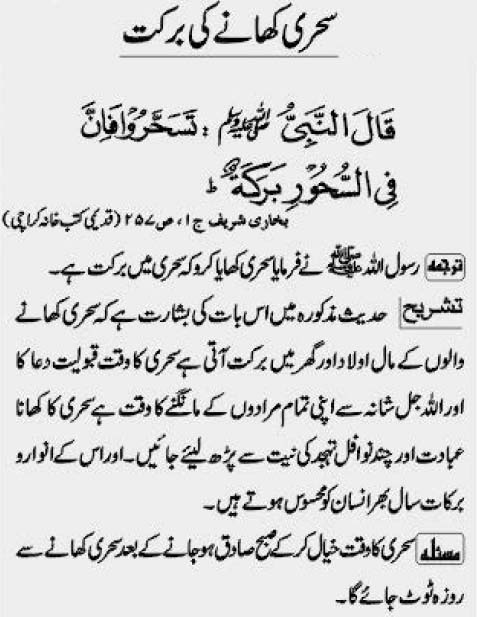 سحری کھانے کی برکت
قَالَ النَّبِیُّ ﷺ : تَسَحَّرُوْا فَاِنَّ
فِی السُّحُوْرِ بَرَکَةً ط
بخاری شریف ج ۱، ص ۲۵۷ (قدیمی کتب خانہ کراچی)
ترجمہ رسول اللہ ﷺ نے فرمایا سحری کھایا کرو کہ سحری میں برکت ہے۔
تشریح حدیث مذکورہ میں اس بات کی بشارت ہے کہ سحری کھانے
والوں کے مال اولاد اور گھر میں برکت آتی ہے سحری کا وقت قبولیت دعا کا
اور اللہ جل شانہ سے اپنی تمام مرادوں کے مانگنے کا وقت ہے سحری کا کھانا
عبادت اور چند نوافل تہجد کی نیت سے پڑھ لیئے جائیں۔ اور اس کے انوار و
برکات سال بھر انسان کو محسوس ہوتے ہیں۔
مسئلہ سحری کا وقت خیال کر کے صبح صادق ہو جانے کے بعد سحری کھانے سے
روزہ ٹوٹ جائے گا۔